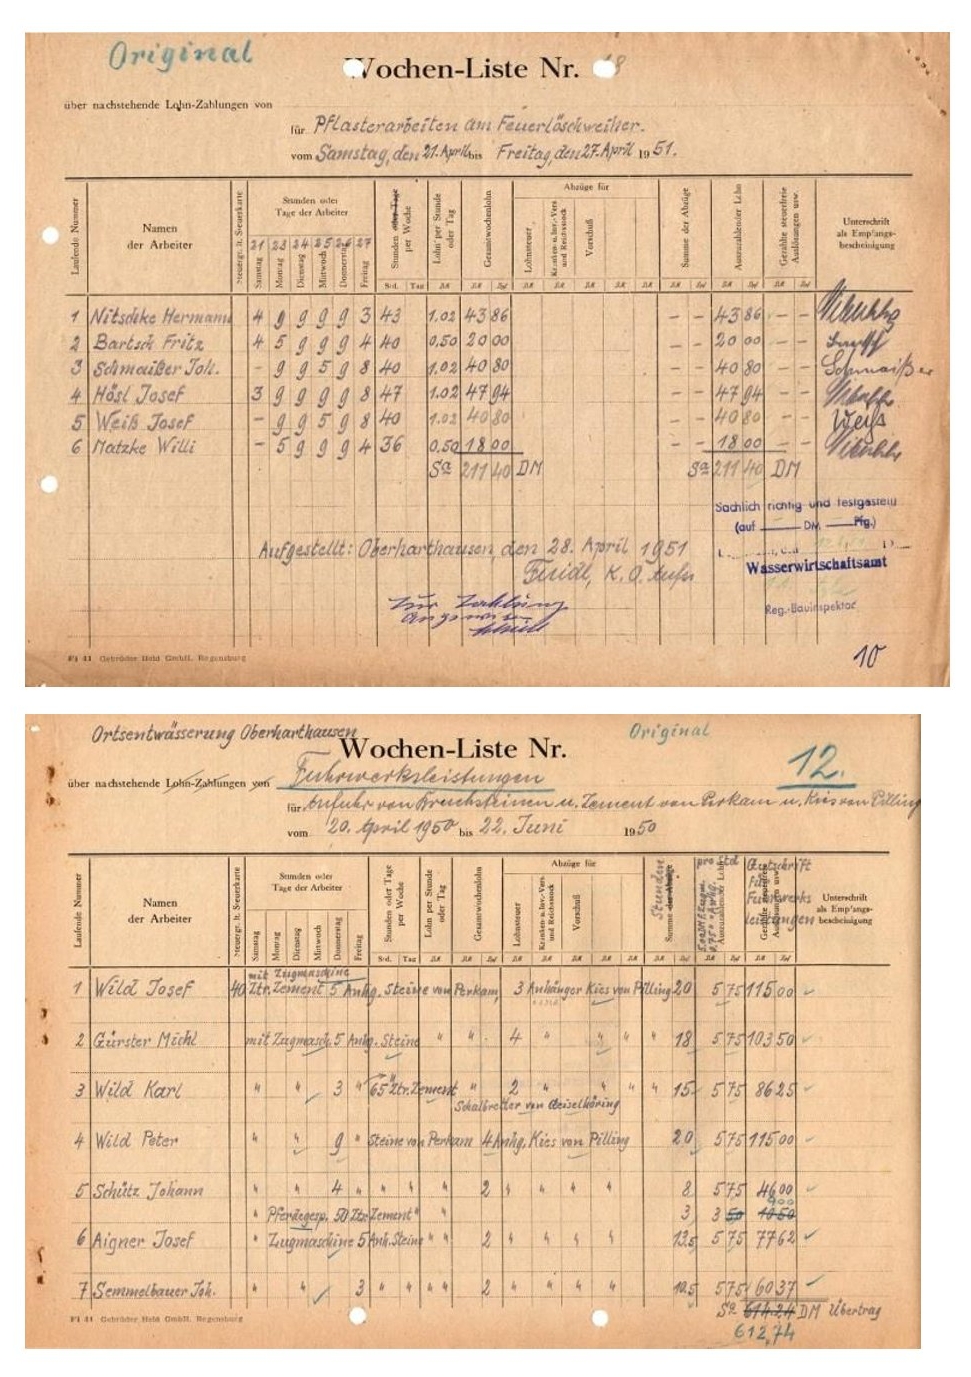 Original
Wochen-Liste Nr. 18
über nachstehende Lohn-Zahlungen von
für Pflasterarbeiten am Feuerlöschweiher.
vom Samstag, den 21. April bis Freitag, den 27. April 1951.
Laufende Nummer
Namen der Arbeiter
Steuergr. lt. Steuerkarte
Stunden oder Tage der Arbeiter
21 23 24 25 26 27
Samstag Montag Dienstag Mittwoch Donnerstag Freitag
Stunden oder Tage per Woche
Lohn per Stunde oder Tag
Gesamtwochenlohn
Abzüge für
Lohnsteuer
Kranken- u. Inv.-Vers. und Reichsstock
Vorschuß
Summe der Abzüge
Auszuzahlender Lohn
Gezahlte steuerfreie Auslösungen usw.
Unterschrift als Empfangsbescheinigung
Std. Tag
1 Nitschke Hermann 4 9 9 9 9 3 43 1.02 43 86 - - 43 86 - -
2 Bartsch Fritz 4 5 9 9 9 4 40 0,50 20 00 - - 20 00 - -
3 Schmaißer Joh. - 9 9 5 9 8 40 1.02 40 80 - - 40 80 - - Schmaißer
4 Hösl Josef 3 9 9 9 9 8 47 1.02 47 94 - - 47 94 - -
5 Weiß Josef - 9 9 5 9 8 40 1.02 40 80 - - 40 80 - - Weiß
6 Matzke Willi - 5 9 9 9 4 36 0.50 18 00 - - 18 00 - -
Sa 211 40 DM Sa 211 40 DM
Sachlich richtig und festgestellt
(auf DM Pfg.)
Aufgestellt: Oberharthausen, den 28. April 1951
Wasserwirtschaftsamt
Zur Zahlung
angewiesen
Reg.-Bauinspektor
10
Fl 41 Gebrüder Held GmbH. Regensburg
Ortsentwässerung Oberharthausen
Original
Wochen-Liste Nr.
12.
über nachstehende Lohn-Zahlungen von Fuhrwerksleistungen
für Anfuhr von Bruchsteinen u. Zement von Perkam u. Kies von Pilling
vom 20. April 1950 bis 22. Juni 1950
Laufende Nummer
Namen der Arbeiter
Steuergr. lt. Steuerkarte
Stunden oder Tage der Arbeiter
Samstag Montag Dienstag Mittwoch Donnerstag Freitag
Stunden oder Tage per Woche
Lohn per Stunde oder Tag
Gesamtwochenlohn
Abzüge für
Lohnsteuer
Kranken- u. Inv.-Vers. und Reichsstock
Vorschuß
Stunden
Summe der Abzüge
pro Std
Auszuzahlender Lohn
Gutschrift für Fuhrwerksleistungen
Unterschrift als Empfangsbescheinigung
Std. Tag
mit Zugmaschine
1 Wild Josef 40 Ztr. Zement 5 Anhg. Steine von Perkam, 3 Anhänger Kies von Pilling 20 5 75 115 00
2 Gürster Michl mit Zugmasch. 5 Anhg. Steine " " 4 " " " " 18 5 75 103 50
3 Wild Karl " " 3 " 65 Ztr. Zement " 2 " " " " 15 5 75 86 25
Schalbretter von Geiselhöring
4 Wild Peter " " 9 " Steine von Perkam 4 Anhg. Kies von Pilling 20 5 75 115 00
5 Schütz Johann " " 4 " " " " 2 " " " " 8 5 75 46 00
9 00
" Pferdegesp. 50 Ztr. Zement " " 3 3 50 10 50
6 Aigner Josef " Zugmaschine 5 Anh. Steine " " 2 " " " " 13.5 5 75 77 62
7 Semmelbauer Joh. " " 3 " " " " 2 " " " " 10.5 5 75 60 37
Sa 614.24 DM Übertrag
612,74
Fl 41 Gebrüder Held GmbH. Regensburg